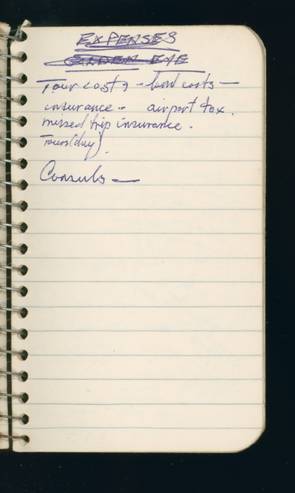 EXPENSES
GOLDEN EYE
Tour costs - land costs -
insurance - airport tax.
missed trip insurance.
Tours (day)
Consuls -